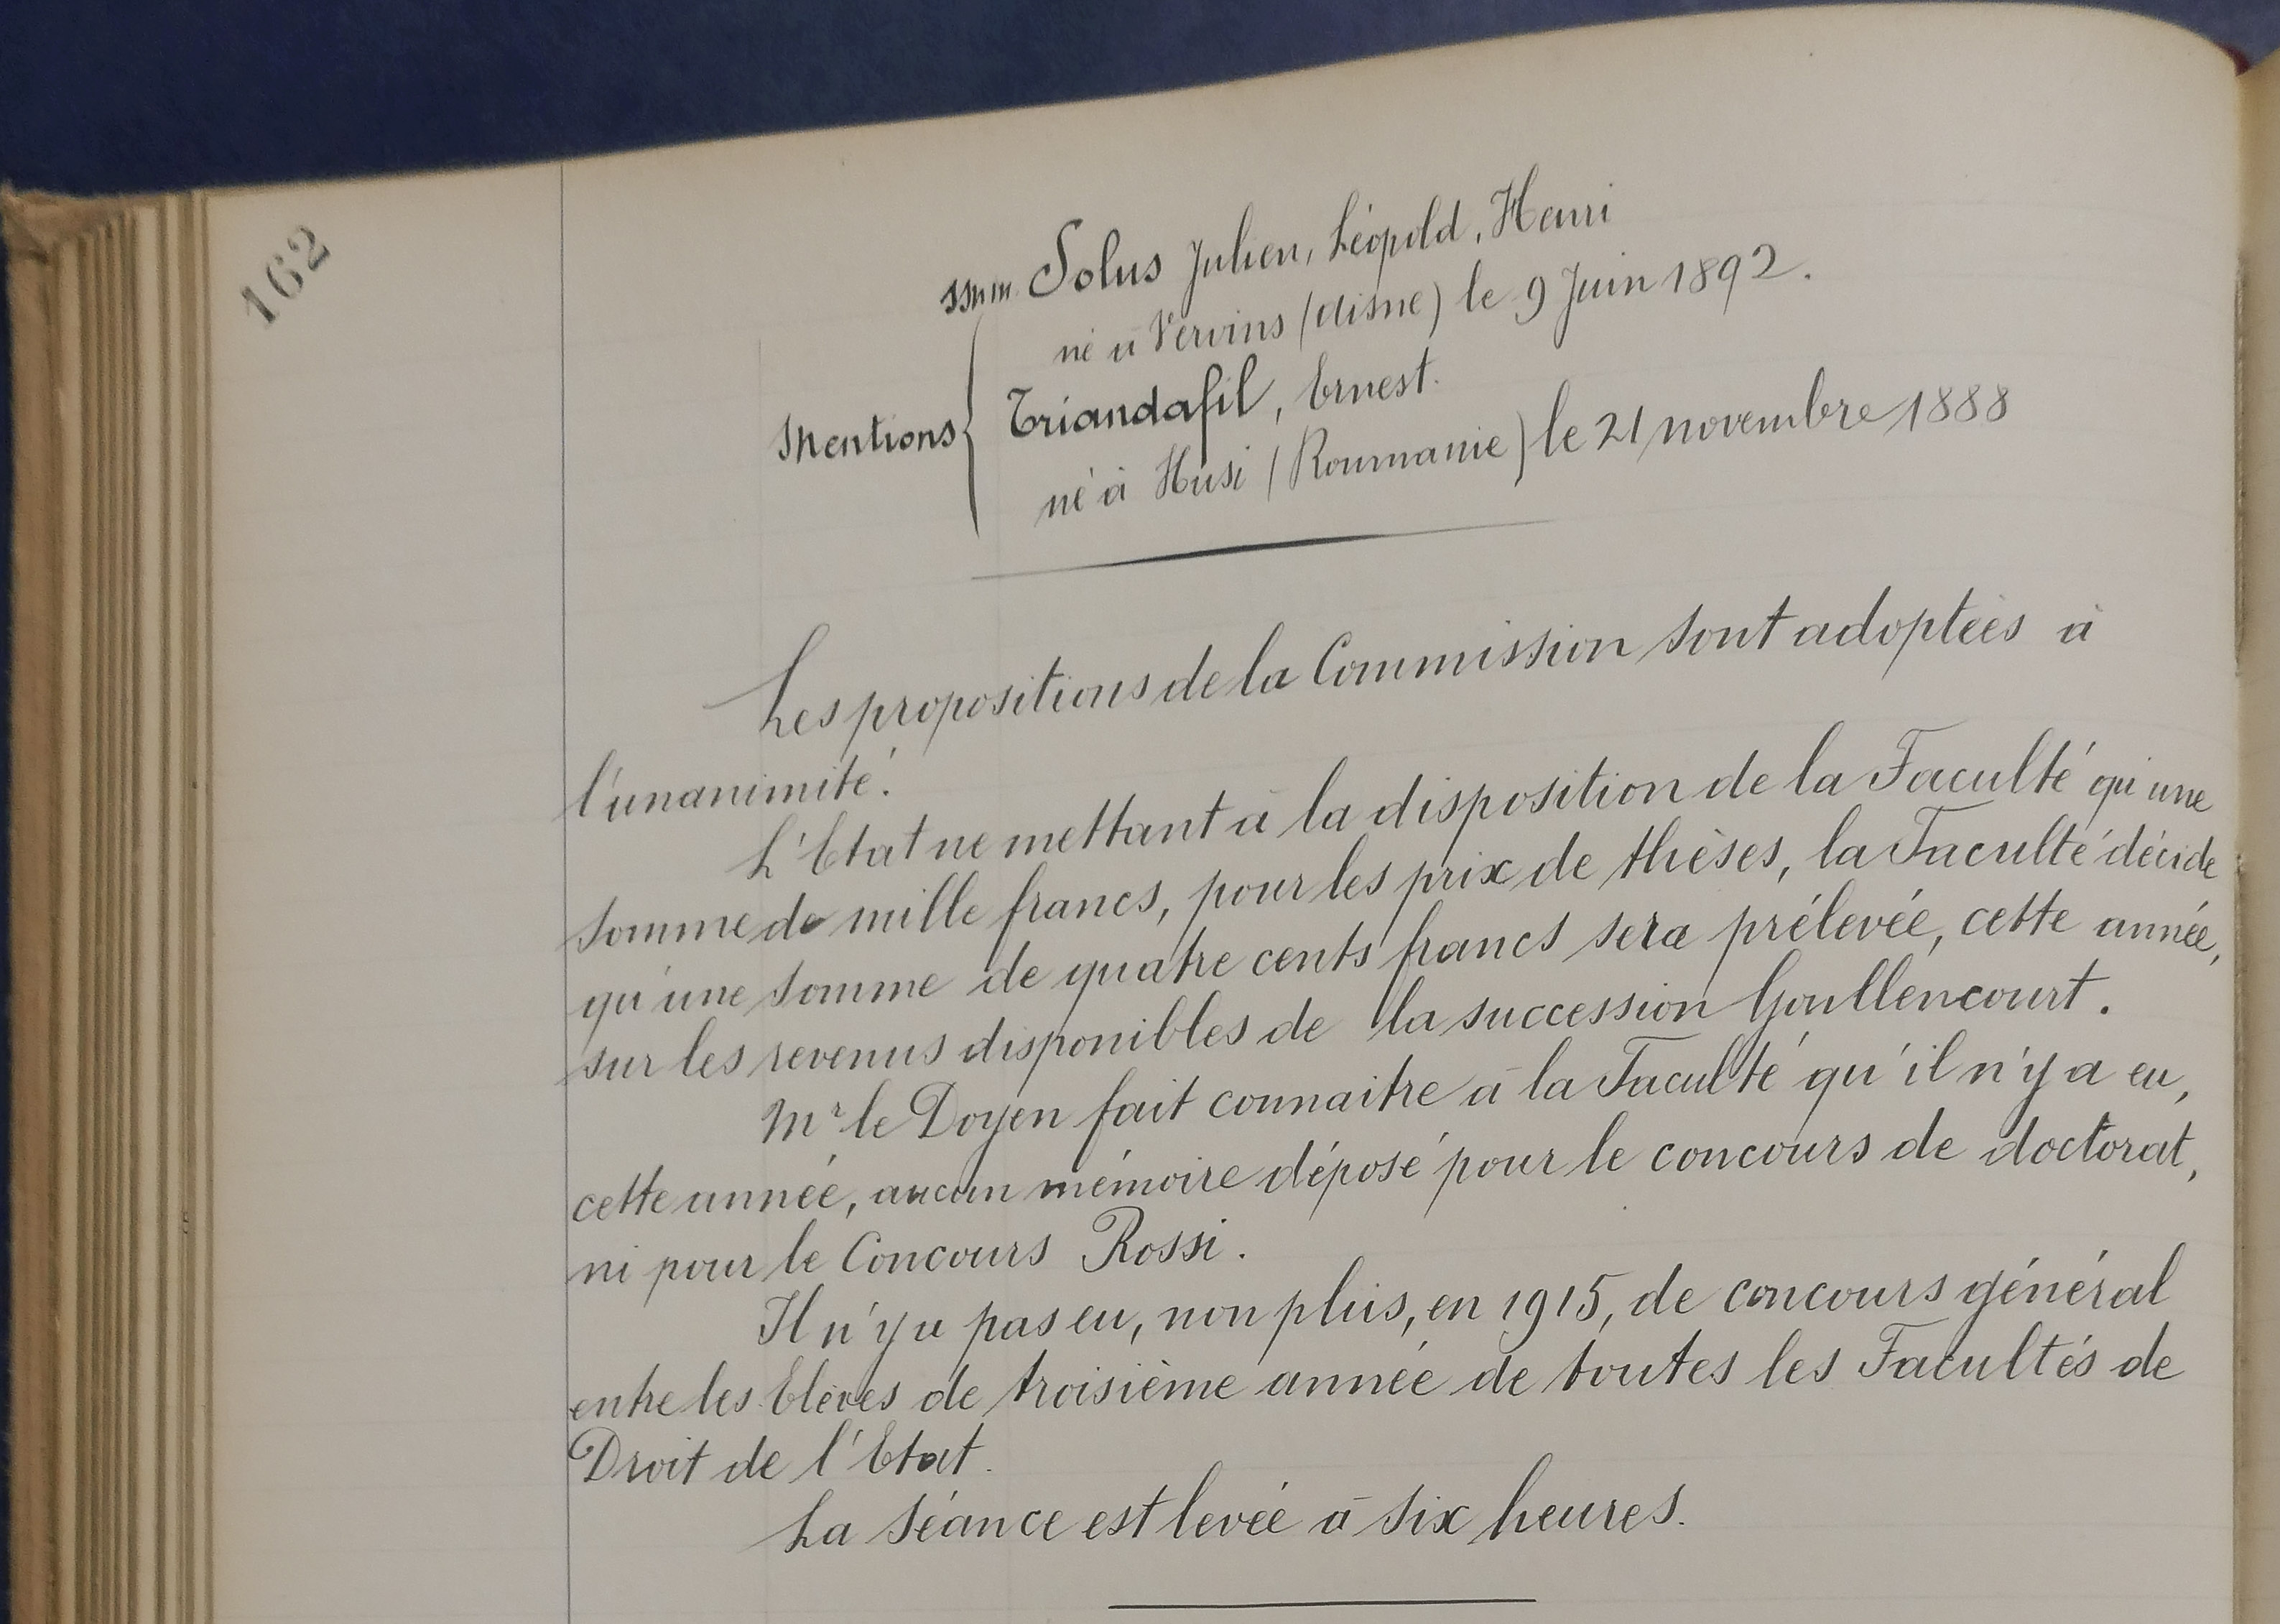 162
MM. Solus Julien, Léopold, Henri
né à Vervins (Aisne) le 9 Juin 1892.
Mentions { Triandafil, Ernest.
né à Husi (Roumanie) le 21 novembre 1888
Les propositions de la Commission sont adoptées à
l'unanimité.
L'Etat ne mettant à la disposition de la Faculté qu'une
somme de mille francs, pour les prix de thèses, la Faculté décide
qu'une somme de quatre cents francs sera prélevée, cette année,
sur les revenus disponibles de la succession Goullencourt.
Mr le Doyen fait connaitre à la Faculté qu'il n'y a eu,
cette année, aucun mémoire déposé pour le concours de doctorat,
ni pour le Concours Rossi.
Il n'y a pas eu, non plus, en 1915, de concours général
entre les Elèves de troisième année de toutes les Facultés de
Droit de l'Etat.
La Séance est levée à six heures.